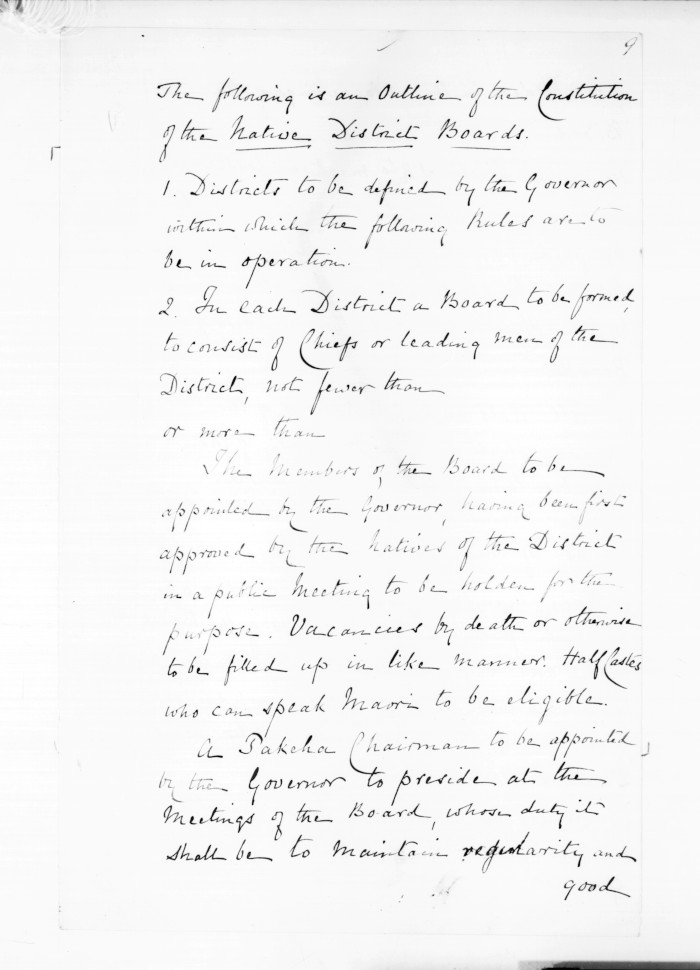 9
The following is an Outline of the Constitution
of the Native District Boards.
1. Districts to be defined by the Governor
within which the following Rules are to
be in operation.
2. In each District a Board to be formed,
to consist of Chiefs or leading men of the
District, not fewer than
or more than
The Members of the Board to be
appointed by the Governor, having been first
approved by the Natives of the District
in a public Meeting to be holden for the
purpose. Vacancies by death or otherwise
to be filled up in like manner. Half Castes
who can speak Maori to be eligible.
A Pakeha Chairman to be appointed
by the Governor to preside at the
Meetings of the Board, whose duty it
shall be to maintain regularity and
good